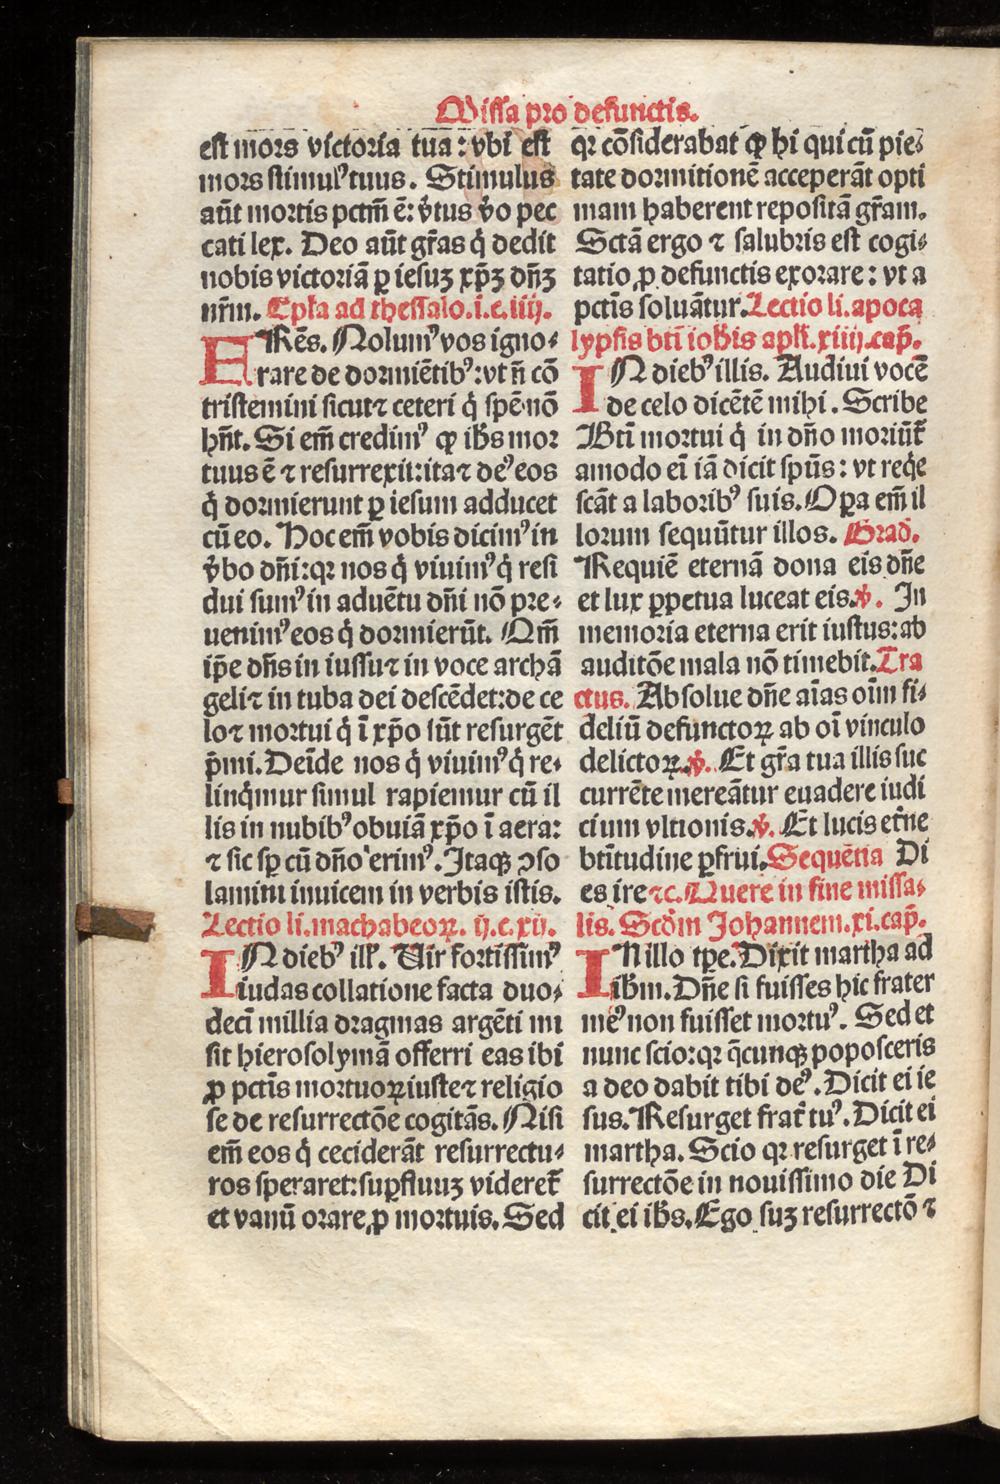 Missa pro defunctis.
est mors victoria tua: vbi est
mors stimulꝰ tuus. Stimulus
aūt mortis pctm̄ ē: v̓tus v̓o pec
cati lex. Deo aūt gr̄as q̇ dedit
nobis victoriā ꝑ iesuꝫ xp̄ꝫ dn̄ꝫ
nr̄m. Epl̄a ad thessalo.i.c.iiij.
FRēs. Nolumꝰ vos igno⸗
rare de dormiētibꝰ: vt n̄ cō
tristemini sicut⁊ ceteri q̇ spē nō
hn̄t. Si em̄ credimꝰ ꝙ ih̄s mor
tuus ē ⁊ resurrexit: ita⁊ deꝰ eos
q̇ dormierunt ꝑ iesum adducet
cū eo. Hoc em̄ vobis dicimꝰ in
v̓bo dn̄i: qꝛ nos q̇ viuimꝰ q̇ resi
dui sumꝰ in aduētu dn̄i nō pre⸗
uenimꝰ eos q̇ dormierūt. Qm̄
ip̄e dn̄s in iussu⁊ in voce archā
geli⁊ in tuba dei descēdet: de ce
lo⁊ mortui q̇ ī xp̄o sūt resurgēt
p̄mi. Deīde nos q̇ viuimꝰ q̇ re⸗
linq̇mur simul rapiemur cū il
lis in nubibꝰ obuiā xp̄o ī aera:
⁊ sic sꝑ cū dn̄o erimꝰ. Itaqꝫ ꝯso
lamini inuicem in verbis istis.
Lectio li. machabeoꝝ. ij.c.xij.
IN diebꝰ ill̄. Vir fortissimꝰ
iudas collatione facta duo⸗
decī millia dragmas argēti mi
sit hierosolymā offerri eas ibi
ꝓ pctīs mortuoꝝ iuste⁊ religio
se de resurrectōe cogitās. Nisi
em̄ eos q̇ ceciderāt resurrectu⸗
ros speraret: suꝑfluuꝫ videret̄
et vanū orare ꝓ mortuis. Sed
qꝛ cōsiderabat ꝙ hi qui cū pie⸗
tate dormitionē acceperāt opti
mam haberent repositā gr̄am.
Sctā ergo ⁊ salubris est cogi⸗
tatio ꝓ defunctis exorare: vt a
pctīs soluātur. Lectio li. apoca
lypsis btī ioh̄is apl̄i. xiiij.cap̄.
IN diebꝰ illis. Audiui vocē
de celo dicētē mihi. Scribe
Btī mortui q̇ in dn̄o moriūt̄
amodo eī iā dicit spūs: vt req̇e
scāt a laboribꝰ suis. Oꝑa em̄ il
lorum sequūtur illos. Grad̄.
Requiē eternā dona eis dn̄e
et lux ꝑpetua luceat eis. ℣. In
memoria eterna erit iustus: ab
auditōe mala nō timebit. Tra
ctus. Absolue dn̄e aīas oīm fi⸗
deliū defunctoꝝ ab oī vinculo
delictoꝝ. ℣. Et gr̄a tua illis suc
currēte mereātur euadere iudi
cium vltionis. ℣. Et lucis et̓ne
btītudine ꝑfrui. Sequētia Di
es ire ⁊c. Quere in fine missa⸗
lis. Scd̄m Johannem. xi. cap̄.
IN illo tꝑe. Dixit martha ad
ih̄m. Dn̄e si fuisses hic frater
meꝰ non fuisset mortuꝰ. Sed et
nunc scio: qꝛ q̄cunqꝫ poposceris
a deo dabit tibi deꝰ. Dicit ei ie
sus. Resurget frat̓ tuꝰ. Dicit ei
martha. Scio qꝛ resurget ī re⸗
surrectōe in nouissimo die Di
cit ei ih̄s. Ego suꝫ resurrectō ⁊